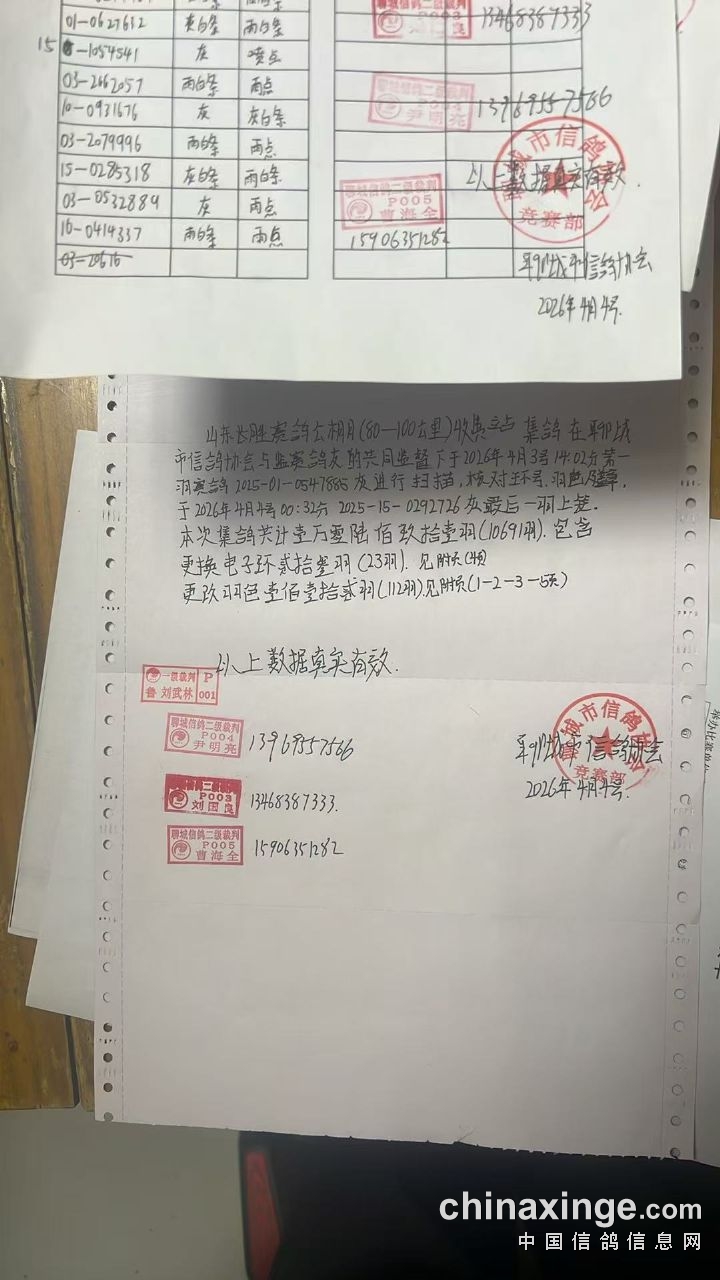 01-0627612 灰白条 雨白条
15 -1054541 灰 喷点
03-2662057 雨白条 雨点
10-0931676 灰 灰白条
03-2079996 雨白条 雨点
15-0285318 灰白条 雨白条
03-0532889 灰 雨点
16-0414337 雨白条 雨点
03-20616
P003
13468387333
P004
尹明亮
13969557566
聊城信鸽二级裁判
P005
曹海全
15906351282
城市信鸽
竞赛部
以上数据真实有效.
聊城市信鸽协会
2026年4月4号.
山东长胜赛鸽公棚(80—100公里)收费站 集鸽 在聊城
市信鸽协会与监赛鸽友的共同监督下于2026年4月3号14:02分第一
羽赛鸽 2025-01-0547885 灰进行扫描,核对环号.羽色
于2026年4月4号00:32分 2025-15-0292726 灰最后一羽上笼.
本次集鸽共计壹万零陆佰玖拾壹羽(10691羽).包含
更换电子环贰拾叁羽(23羽).见附页(4页)
更改羽色壹佰壹拾贰羽(112羽).见附页(1-2-3-5页)
以上数据真实有效.
一级裁判 P
鲁 刘武林 001
聊城信鸽二级裁判
P004
尹明亮
13969557566
P003
刘国良
13468387333.
聊城信鸽二级裁判
P005
曹海全
15906351282
城市信鸽
竞赛部
聊城市信鸽协会
2026年4月4号.
chinaxinge.com
中国信鸽信息网